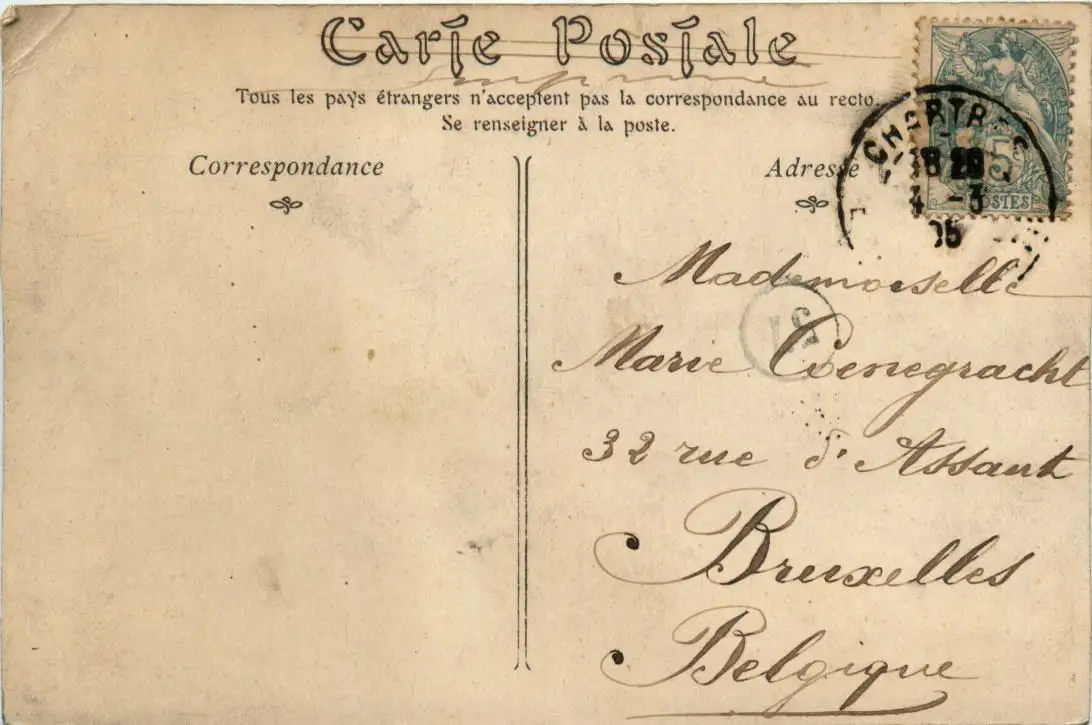 Carte Postale
Imprimé
Tous les pays étrangers n'acceptent pas la correspondance au recto.
Se renseigner à la poste.
Correspondance
Adresse
CHARTRES
18 20
4 - 3
05
5
POSTES
Mademoiselle
51
Marie Coenegracht
32 rue d'Assaut
Bruxelles
Belgique